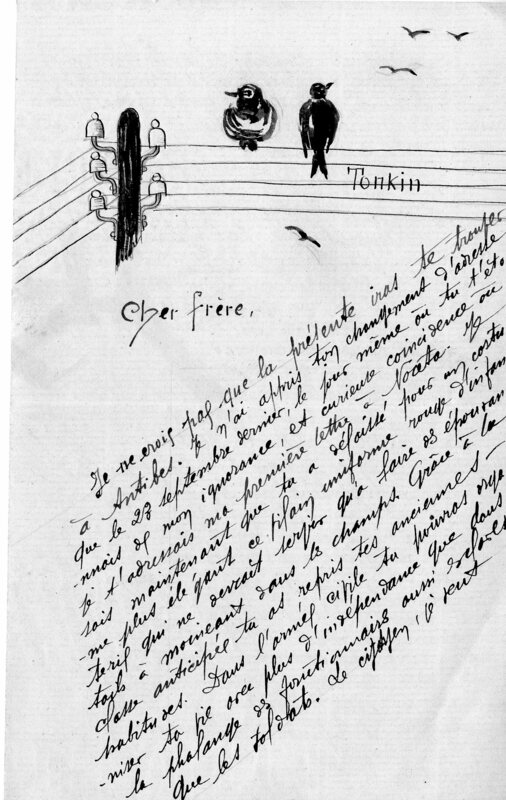 Tonkin
Cher frère,
Je ne crois pas que la présente iras te trouver
à Antibes. Je n'ai appris ton changement d'adresse
que le 23 septembre dernier, le jour même où tu t'éto-
nnais de mon ignorance, et curieuse coincidence où
je t'adressais ma première lettre à
sais maintenant que tu a délaissé pour un costu
-me plus élégant ce vilain uniforme rouge d'infan
terie qui ne devrait servir qu'a faire des épouvan
tails à moineaux dans le champs. Grâce à la
classe anticipée tu as repris tes anciennes
habitudes. Dans l'armée civile tu pourras orga
-niser ta vie avec plus d'indépendance que dans
la phalange de fonctionnaires aussi
que les soldats. Le citoyen, il sent